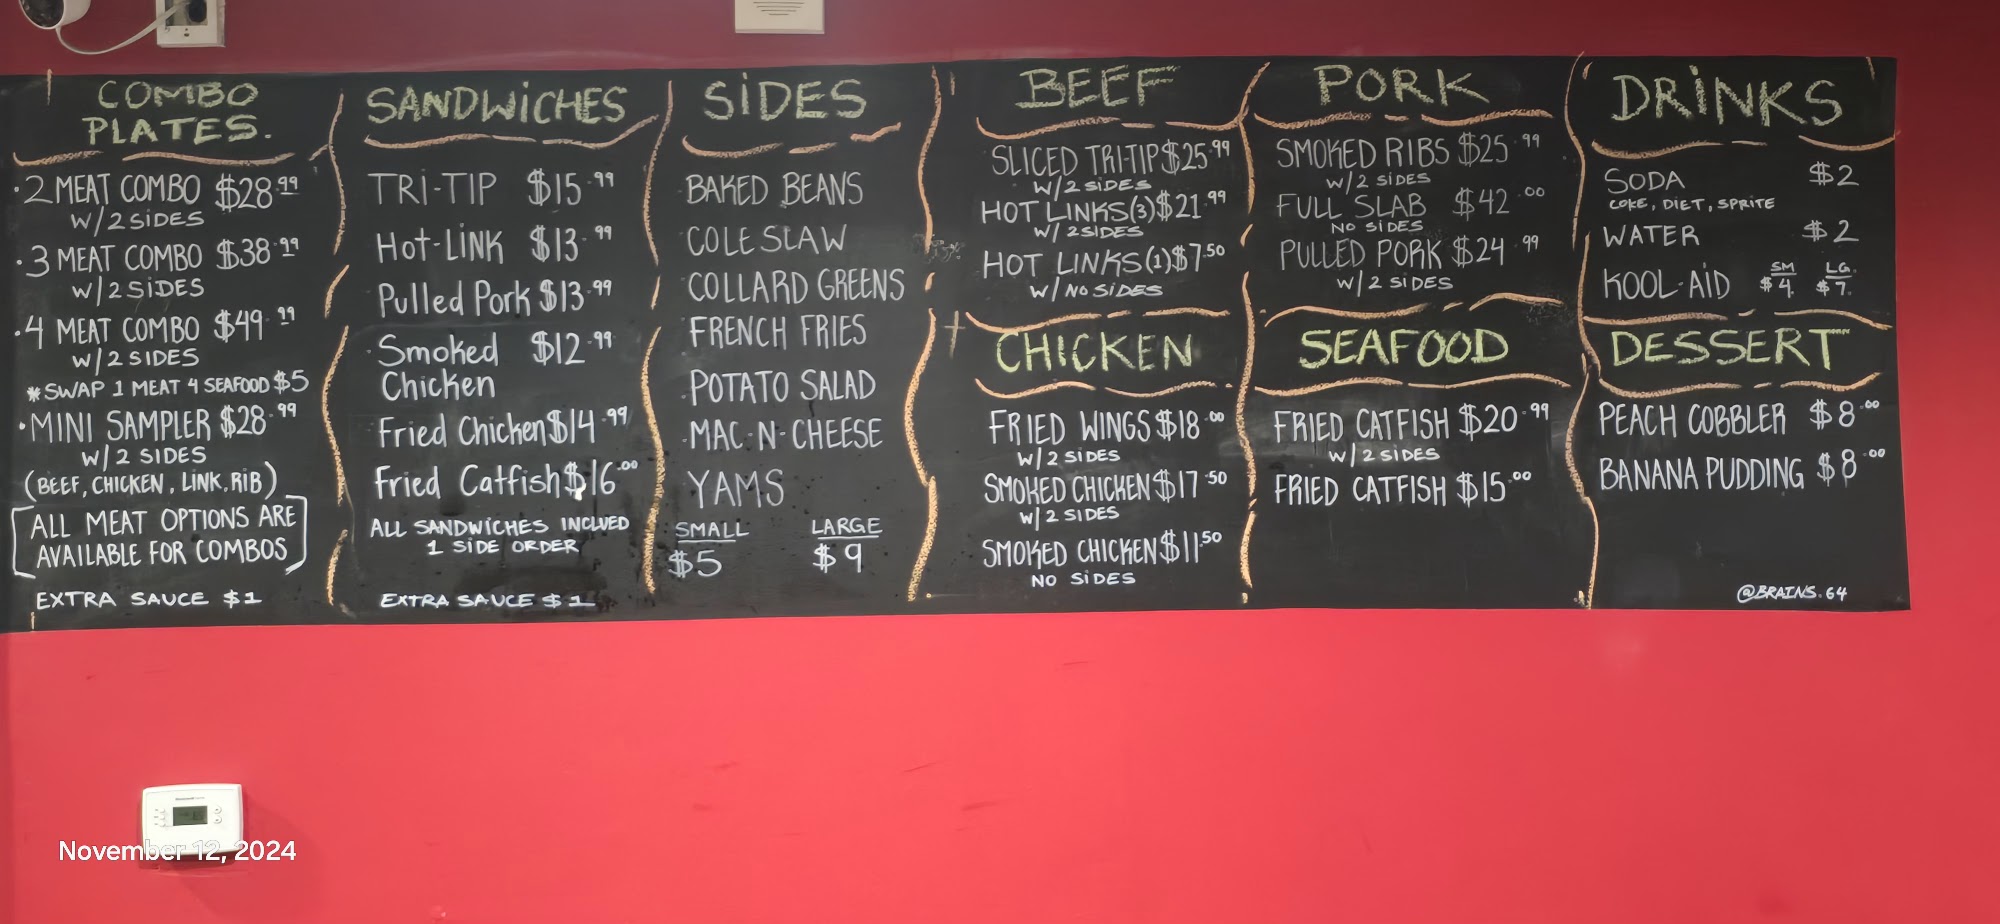 COMBO
PLATES.
· 2 MEAT COMBO $28.99
W/2 SiDES
· 3 MEAT COMBO $38.99
W/2 SiDES
· 4 MEAT COMBO $49.99
W/2 SIDES
* SWAP 1 MEAT 4 SEAFOOD $5
· MINI SAMPLER $28.99
W/2 SIDES
(BEEF, CHICKEN, LINK, RIB)
[ALL MEAT OPTIONS ARE
AVAILABLE FOR COMBOS]
EXTRA SAUCE $1
SANDWiCHES
TRi-TIP $15.99
Hot-LiNK $13.99
Pulled Pork $13.99
Smoked $12.99
Chicken
Fried Chicken $14.99
Fried Catfish $16.00
ALL SANDWiCHES INCLUED
1 SiDE ORDER
EXTRA SAUCE $1
SiDES
BAKED BEANS
COLE SLAW
COLLARD GREENS
FRENCH FRIES
POTATO SALAD
MAC-N-CHEESE
YAMS
SMALL LARGE
$5 $9
BEEF
SLICED TRI-TIP $25.99
W/2 SiDES
HOT LINKS(3) $21.99
W/2SiDES
HOT LINKS(1) $7.50
W/ No SiDES
CHICKEN
FRIED WINGS $18.00
W/2 SiDES
SMOKED CHICKEN $17.50
W/2 SIDES
SMOKED CHICKEN $11.50
NO SiDES
PORK
SMOKED RIBS $25.99
W/2 SiDES
FULL SLAB $42.00
NO SiDES
PULLED PORK $24.99
W/2 SiDES
SEAFOOD
FRIED CATFISH $20.99
W/2 SiDES
FRIED CATFISH $15.00
DRiNKS
SODA $2
COKE, DIET, SPRiTE
WATER $2
KOOL-AiD SM $4. LG. $7.
DESSERT
PEACH COBBLER $8.00
BANANA PUDDING $8.00
@BRAINS.64
November 12, 2024